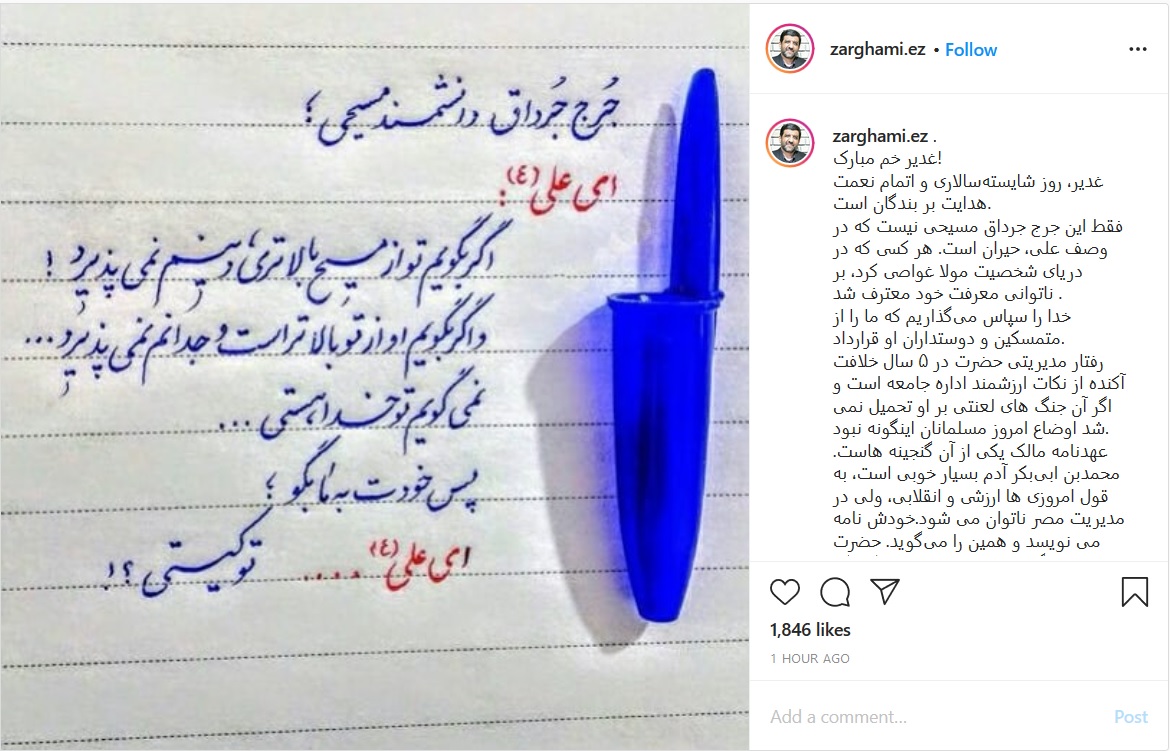 جُرج جُرداق دانشمند مسیحی ؛
ای علی (ع):
اگر بگویم تو از مسیح بالاتری، دینم نمی پذیرد !
و اگر بگویم او از تو بالاتر است وجدانم نمی پذیرد...
نمی گویم تو خدا هستی ...
پس خودت به ما بگو ؛
ای علی (ع) .... تو کیستی ؟!
zarghami.ez • Follow
zarghami.ez .
غدیر خم مبارک!
غدیر، روز شایسته‌سالاری و اتمام نعمت
هدایت بر بندگان است.
فقط این جرج جرداق مسیحی نیست که در
وصف علی، حیران است. هر کسی که در
دریای شخصیت مولا غواصی کرد، بر
ناتوانی معرفت خود معترف شد .
خدا را سپاس می‌گذاریم که ما را از
متمسکین و دوستداران او قرارداد.
رفتار مدیریتی حضرت در ۵ سال خلافت
آکنده از نکات ارزشمند اداره جامعه است و
اگر آن جنگ های لعنتی بر او تحمیل نمی
شد اوضاع امروز مسلمانان اینگونه نبود.
عهدنامه مالک یکی از آن گنجینه هاست.
محمدبن ابی‌بکر آدم بسیار خوبی است، به
قول امروزی ها ارزشی و انقلابی، ولی در
مدیریت مصر ناتوان می شود.خودش نامه
می نویسد و همین را می‌گوید. حضرت
1,846 likes
1 HOUR AGO
Add a comment...
Post